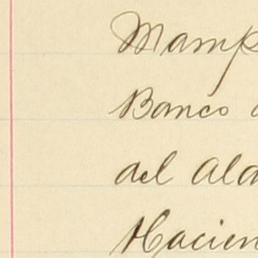 Mamp
Banco
del Ald
Hacien